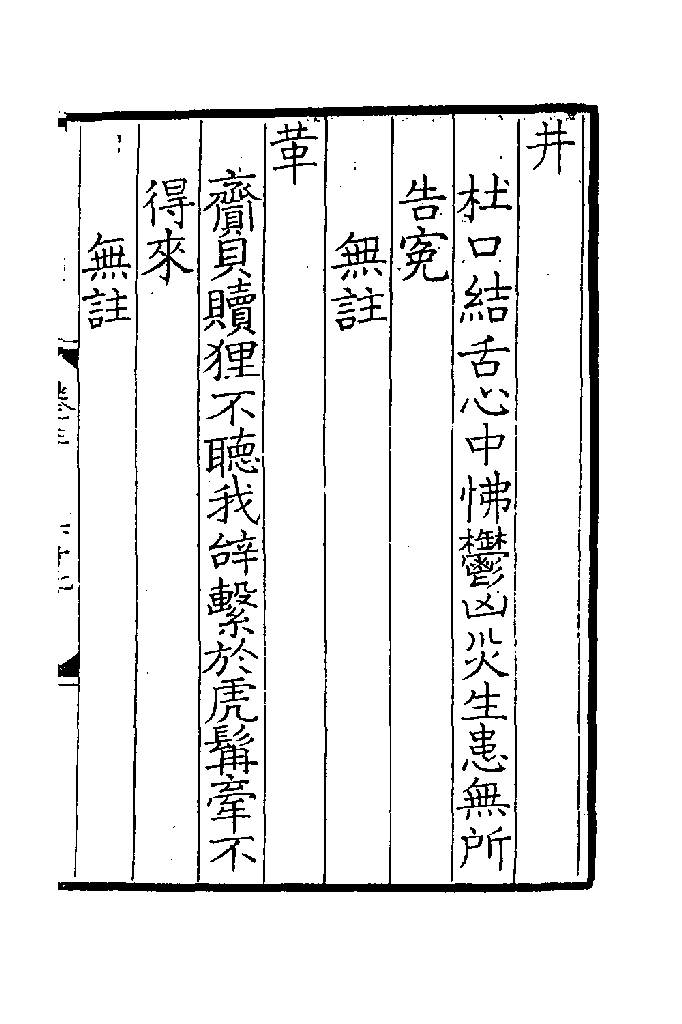 井
杜口結舌心中怫鬱凶災生患無所
告寃
無註
革
齎貝贖狸不聽我辭繫於虎髯牽不
得來
無註